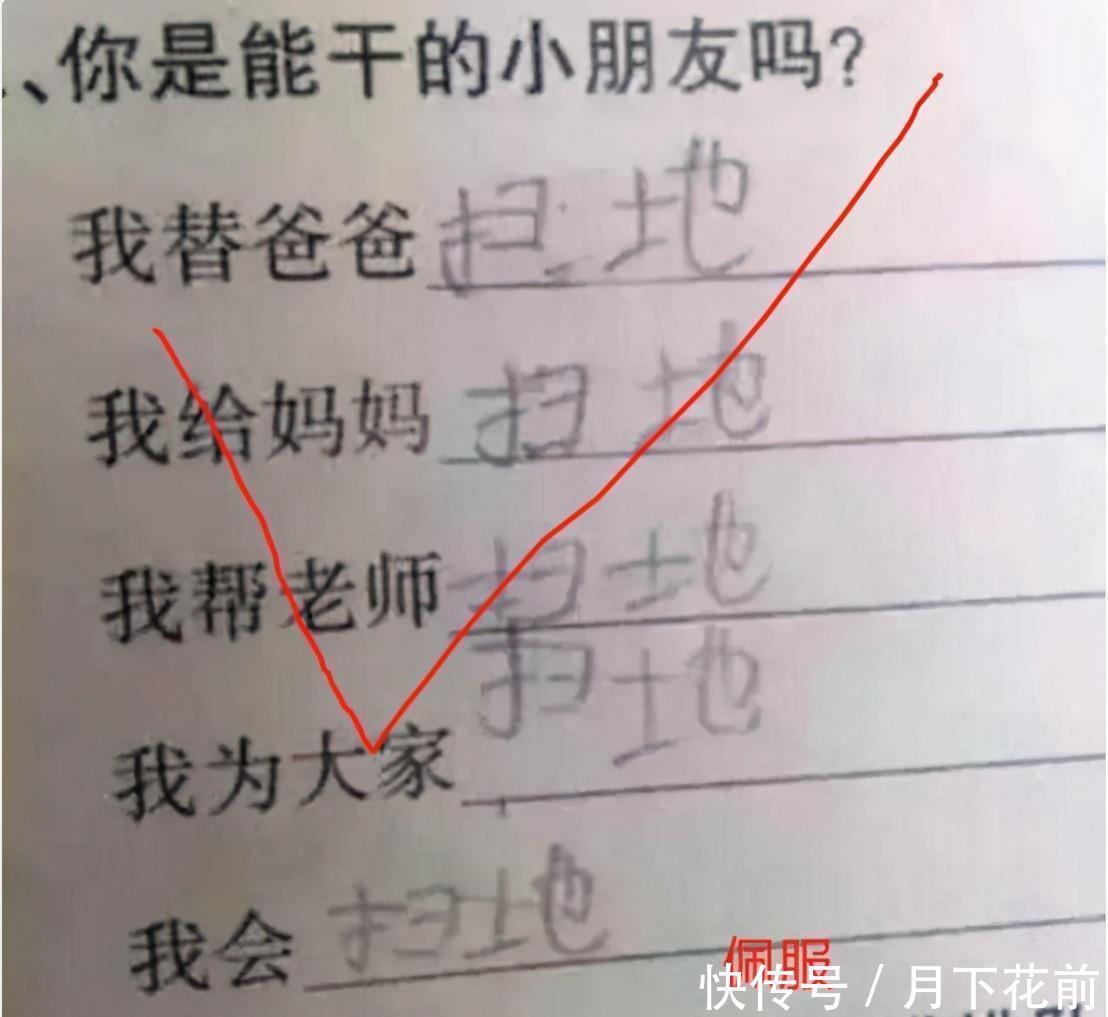 、你是能干的小朋友吗?
我替爸爸扫地
我给妈妈扫地
我帮老师扫地
我为大家扫地
我会扫地
佩服
快传号/月下花前